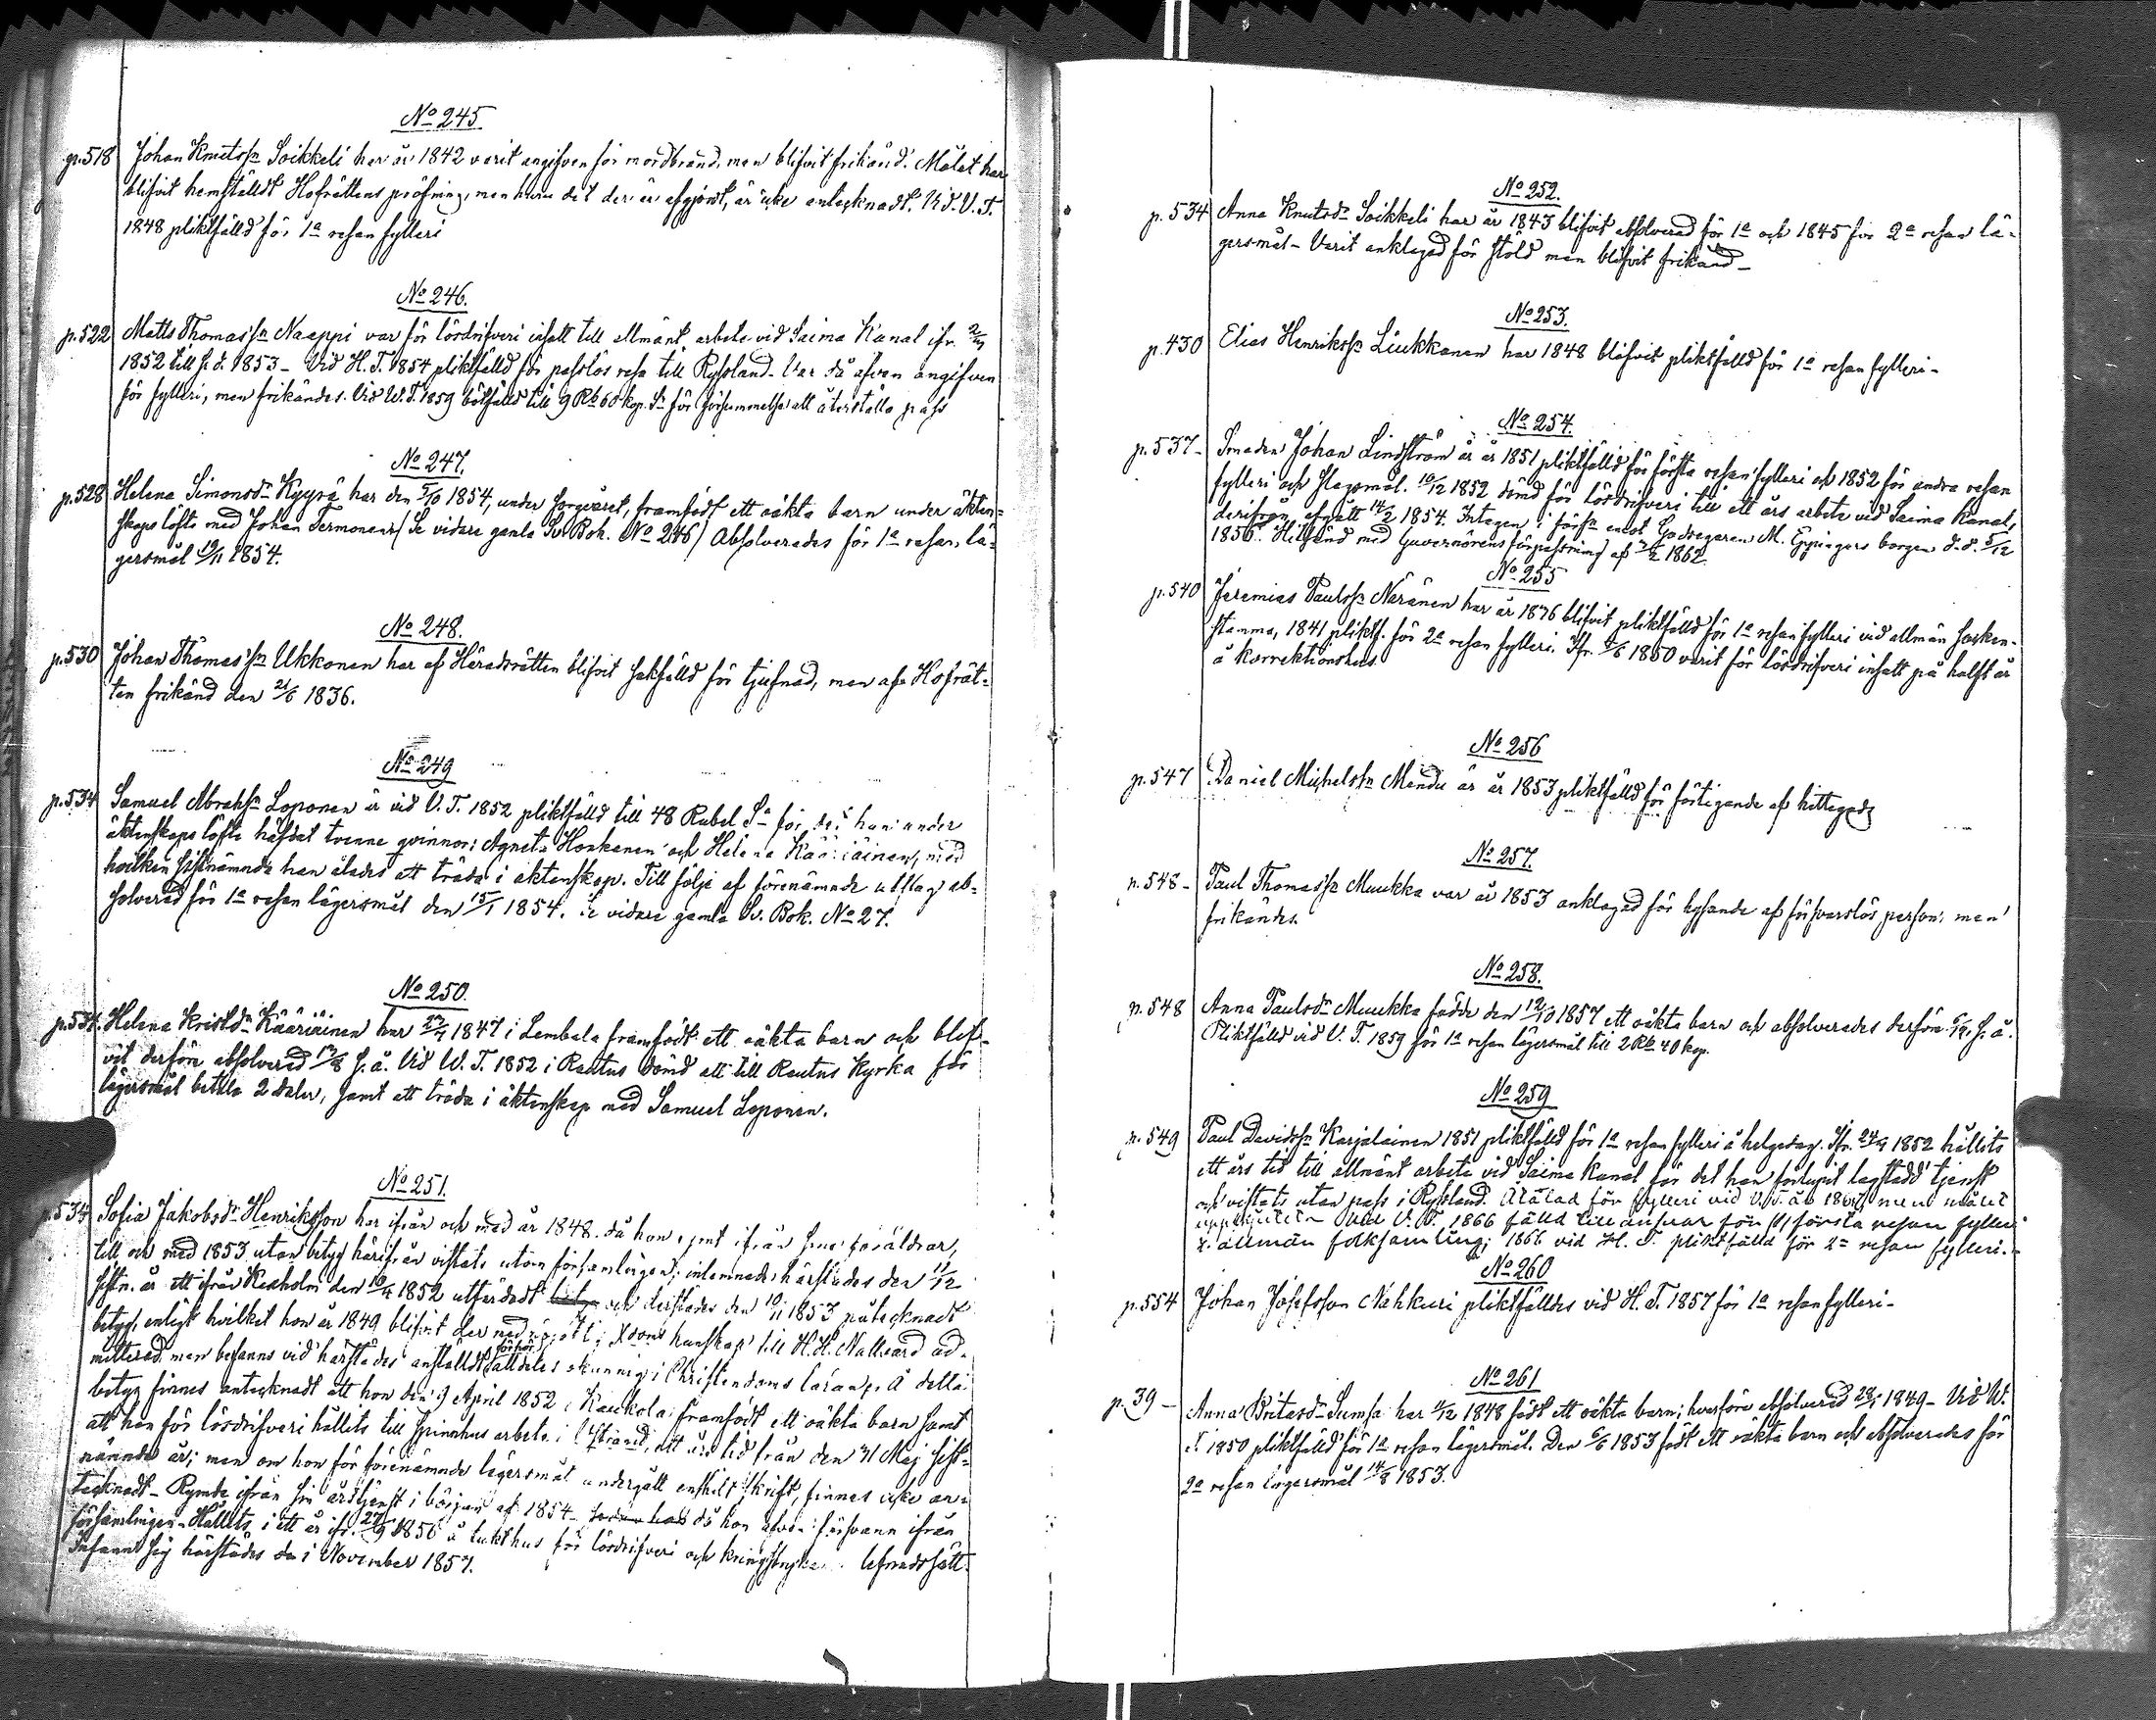 No 245
p.518 Johan Knutss:n Soikkeli har år 1842 varit angifven för mordbrand, men blifvit frikänd. Målet har
blifvit hemställdt Hofrättens pröfning, men huru det der är afgjordt, är icke antecknadt. Vid V. T.
1848 pliktfälld för 1a resan fylleri
No 246.
p.522 Matts Thomass:n Naappi var för lösdrifveri insatt till allmänt arbete vid Saima Kanal ifr.
1852 till s. d. 1853 - Vid H. T. 1854 pliktfälld för passlös resa till Ryssland. Var då äfven angifven
för fylleri, men frikändes. Vid W. T. 1859 bötfälld till 9 Rb 60 kop. Sr för försummelse att återställa pass
No 247.
p.528 Helena Simonsdr Kyyrä har den 5/10 1854, under havandeskap, framfödt ett oäkta barn under äkten-
skaps löfte med Johan Termonen (Se vidare gamla Sv. Bok. No 246) Absolverades för 1a resan lä-
gersmål 19/11 1854.
No 248.
p.530 Johan Thomass:n Ukkonen har af Häradsrätten blifvit sakfälld för tjufnad, men af Hofrät-
ten frikänd den 21/6 1836.
No 249
p.534 Samuel Abrahs:n Loponen är vid V. T. 1852 pliktfälld till 48 Rubel Sr för det han under
äktenskaps löfte häfdat tvenne qvinnor: Agneta Honkanen och Helena Kääriäinen, med
hvilken sistnämnda han ålades att träda i äktenskap. Till följe af förenämnde utslag ab-
solverad för 1a resan lägersmål den 15/1 1854. Se vidare gamla Sv. Bok. No 27.
No 250.
p.534. Helena Kristdr Kääriäinen har 23/7 1847 i Lembala framfödt ett oäkta barn och blif-
vit derföre absolverad 17/8 s. å. Vid W. T. 1852 i Rautus dömd att till Rautus Kyrka för
lägersmål betala 2 daler, samt att träda i äktenskap med Samuel Loponen.
No 251.
p.534 Sofia Jakobsdr Henriksson har ifrån och med år 1848. då hon rymt ifrån sina föräldrar,
till och med 1853 utan betyg härifrån vistats utom församlingen; inlemnade härstädes den 11/12
sistn. år ett ifrån Kexholm den 19/4 1852 utfärdadt och derstädes den 10/11 1853 påtecknadt
betyg, enligt hvilket hon år 1849 blifvit der med kunskap till H. H. Nattvard ad-
mitterad, men befanns vid härstädes anställdt förhör alldeles okunnig i Christendoms läran. På detta
betyg finnes antecknadt att hon den 9 April 1852 i Kaukola framfödt ett oäkta barn samt
att hon för lösdrifveri hållits till spinnhus arbete i ett års tid från den 31 Maj sist-
nämnde år; men om hon för förenämnde lägersmål undergått enskilt skrift, finnes icke an-
tecknadt - Rymde ifrån sin årstjenst i början af 1854 då hon äfven försvann ifrån
församlingen. Hållits i ett år ifr. 27/9 1856 å tukthus för lösdrifveri och kringstrykande lefnadssätt.
Infann sig härstädes i November 1857.
No 252.
p.534 Anna Knutsdr Soikkeli har år 1843 blifvit absolverad för 1a och 1845 för 2a resan lä-
gersmål - Varit anklagad för stöld men blifvit frikänd -
No 253.
p.430 Elias Henrikss:n Liukkonen har 1848 blifvit pliktfälld för 1a resan fylleri -
No 254.
p.537 - Smeden Johan Lindström är år 1851 pliktfälld för första resan fylleri och 1852 för andra resan
fylleri och slagsmål. 10/12 1852 dömd för lösdrifveri till ett års arbete vid Saima Kanal,
derifrån afgått 14/2 1854. Intagen i förs:n emot Godsegaren M. Eppingers borgen d. d. 5/12
1856. Hitsänd med Guvernörens förpassning af 1862.
No 255
p.540 Jeremias Paulss:n Näränen har år 1836 blifvit pliktfälld för 1a resan fylleri vid allmän socken-
stamma, 1841 pliktf. för 2a resan fylleri. Ifr. 1850 varit för lösdrifveri insatt på halft år
å korrektionshus.
No 256
p.547 Daniel Michelss:n Mendu är år 1853 pliktfälld för förtigande af hittegods
No 257.
p.548 - Paul Thomass:n Muukka var år 1853 anklagad för hysande af försvarslös person; men
frikändes.
No 258.
p.548 Anna Paulsdr Muukka födde den 12/10 1857 ett oäkta barn och absolverades derföre 6/12 s. å.
Pliktfälld vid V. T. 1859 för 1a resan lägersmål till 2 Rb 40 kop.
No 259
p.549 Paul Davidss:n Karjalainen 1851 pliktfälld för 1a resan fylleri å helgedag. Ifr. 24/4 1852 hållits
ett års tid till allmänt arbete vid Saima Kanal för det han förlupit lagstadd tjenst
och vistats utan pass i Ryssland. Åtalad för fylleri vid V. T. år men målet
uppskjutits. Vid V. T. 1866 fälld till ansvar för första resan fylleri
i allmän folksamling; 1866 vid H. T. pliktfälld för 2a resan fylleri.
No 260
p.554 Johan Josefsson Nahkuri pliktfälldes vid H. T. 1857 för 1a resan fylleri -
No 261
p.39 - Anna Britasdr Sumsa har 2/12 1848 födt ett oäkta barn; hvarföre absolverad 28/1 1849 - Vid W.
T. 1850 pliktfälld för 1a resan lägersmål. Den 6/6 1853 födt ett oäkta barn och absolverades för
2a resan lägersmål 14/8 1853.